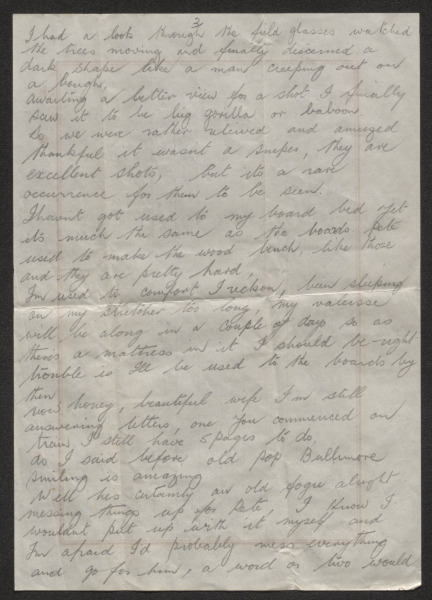 3/
I had a look through the field glasses watched
the trees moving and finally discerned a
dark shape like a man creeping out on
a bough,
awaiting a better view for a shot I finally
saw it to be big gorilla or baboon
So we were rather relieved and amused
thankful it wasnt a sniper, they are
excellent shots, but its a rare
occurrence for them to be seen.
I havent got used to my board bed yet
its much the same as the boards Pete
used to make the wood bench, like those
and they are pretty hard,
I'm used to comfort I reckon, been sleeping
on my stretcher too long, my valeisse
will be along in a couple of days so as
theres a mattress in it I should be right
trouble is I'll be used to the boards by
then
now honey, beautiful wife I'm still
answering letters, one you commenced on
train I still have 5 pages to do,
as I said before old pop Baltimore
smiling is amazing
Well hes certainly an old fogie alright
messing things up for Pete, I know I
wouldnt put up with it myself and
I'm afraid I'd probably mess everything
and go for him, a word or two would